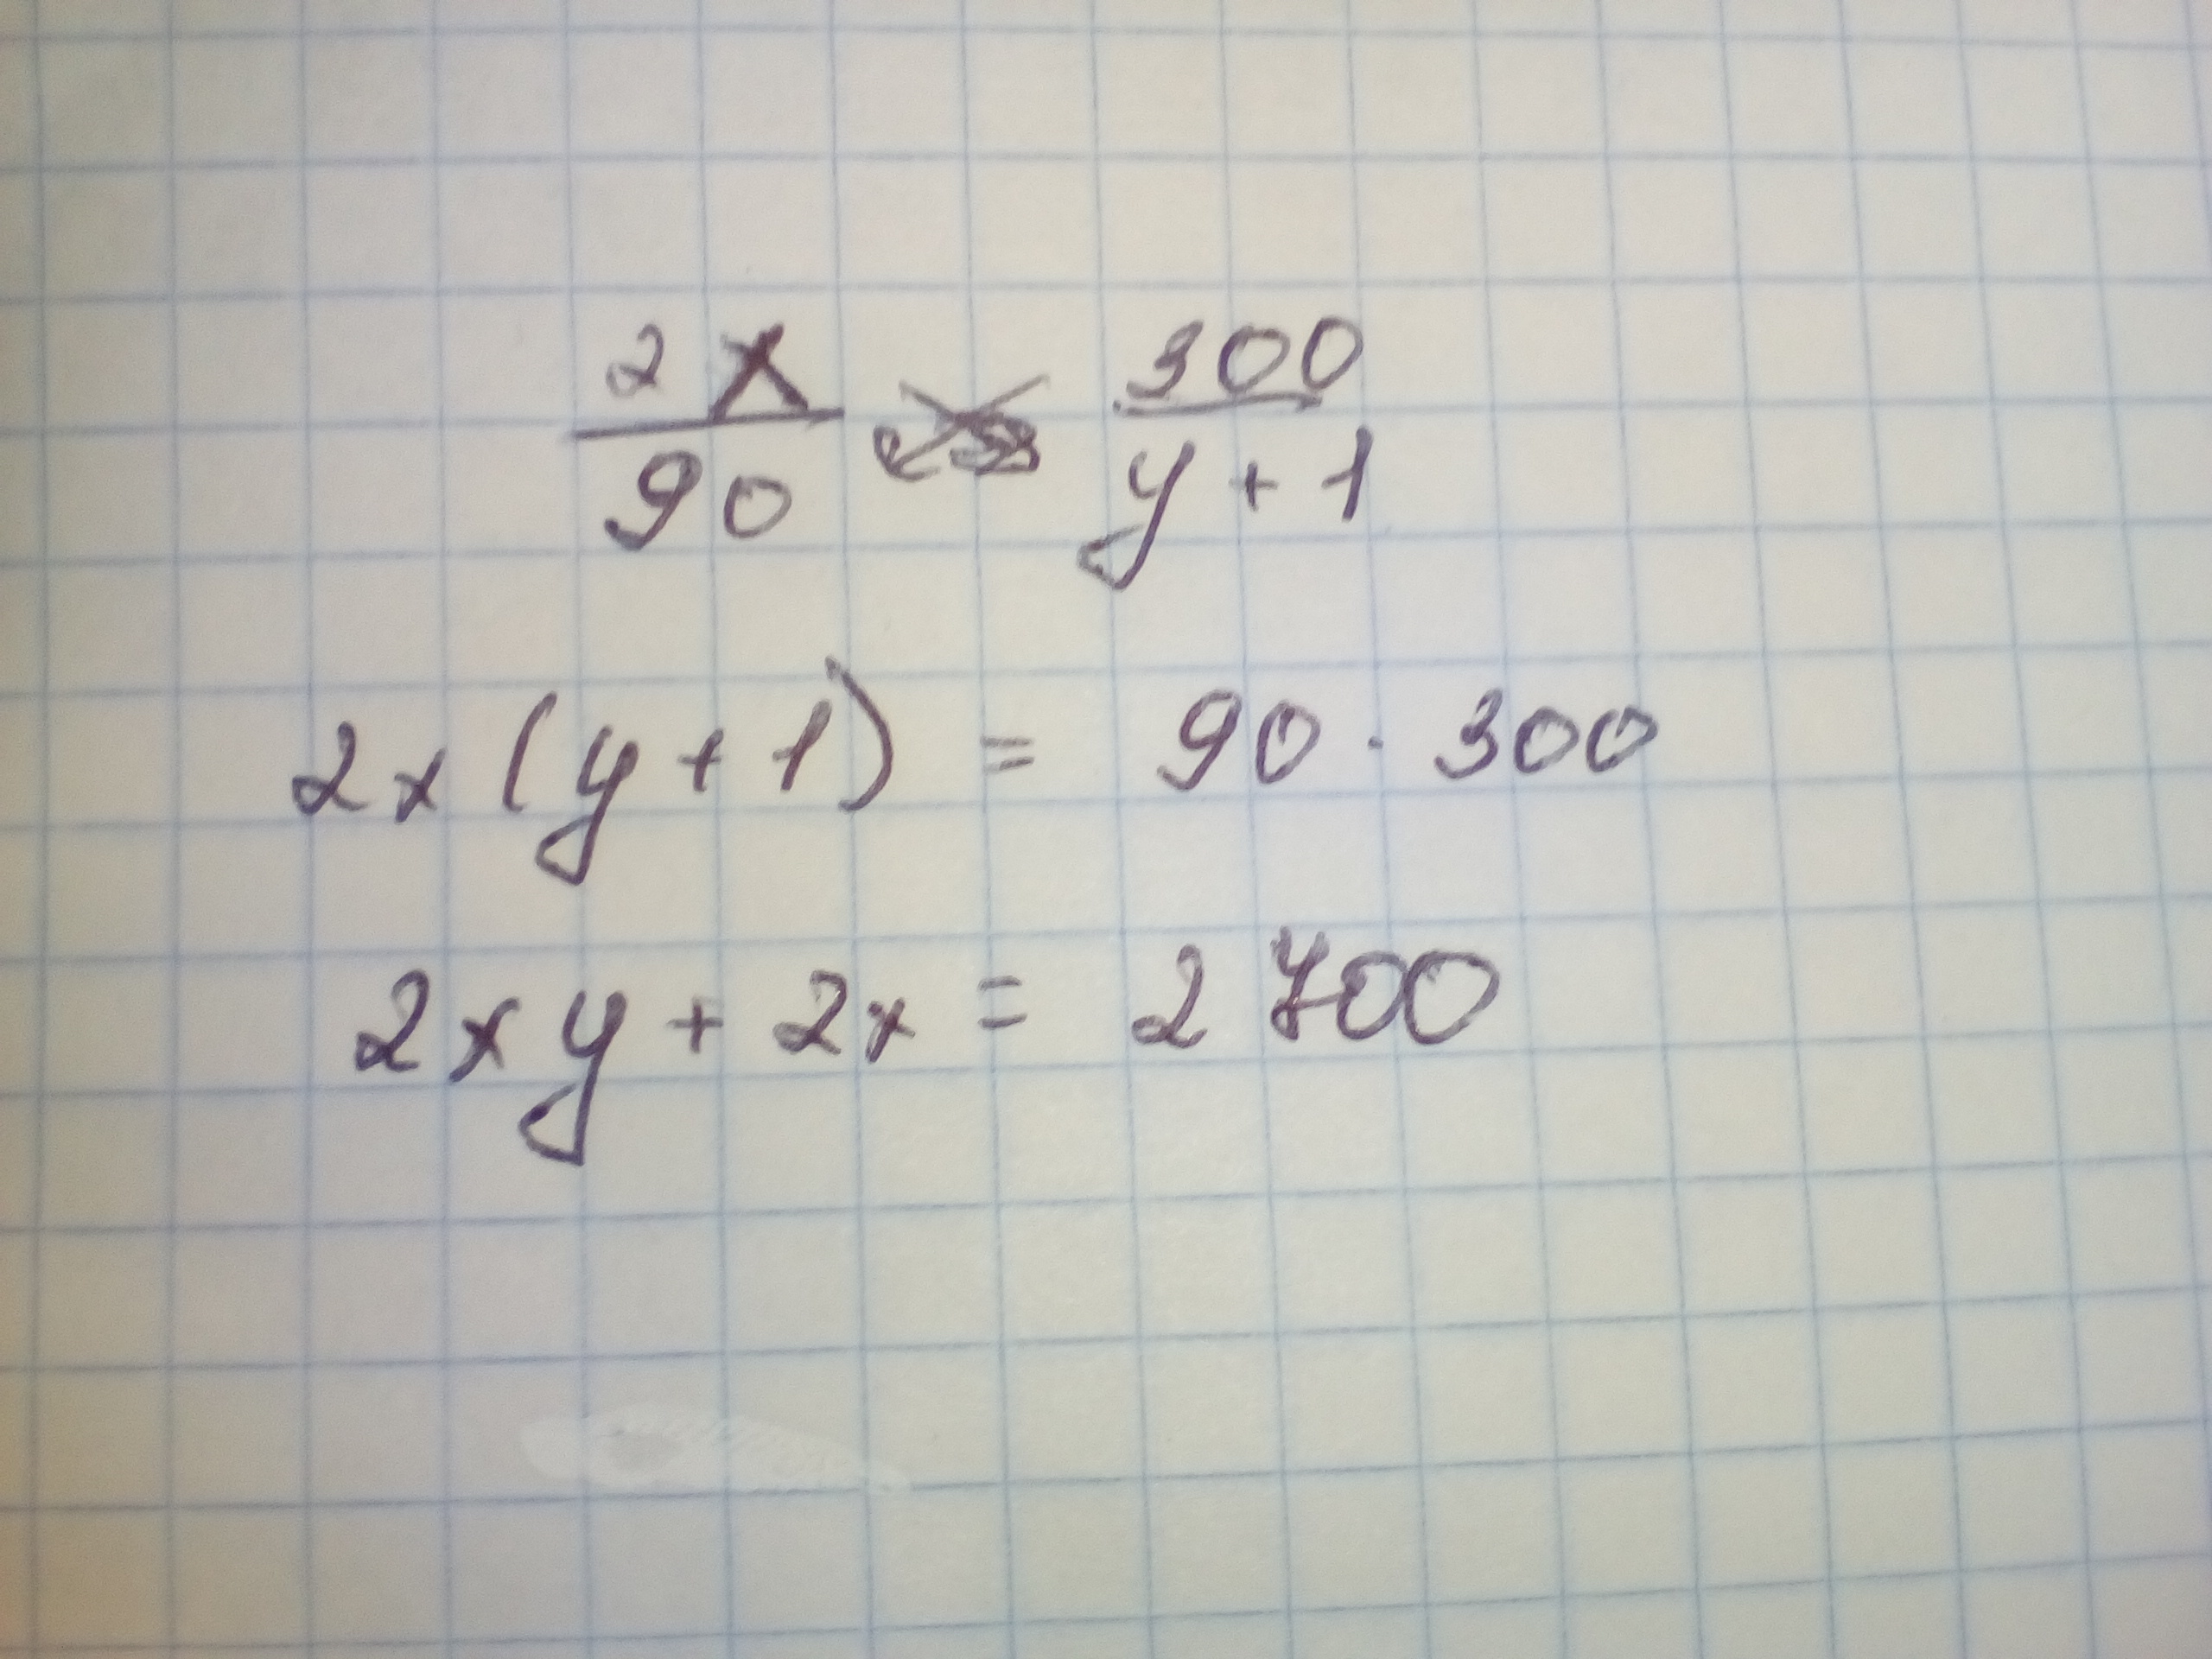 2x/90 300/y+1
2x(y+1) = 90 · 300
2xy + 2x = 2700